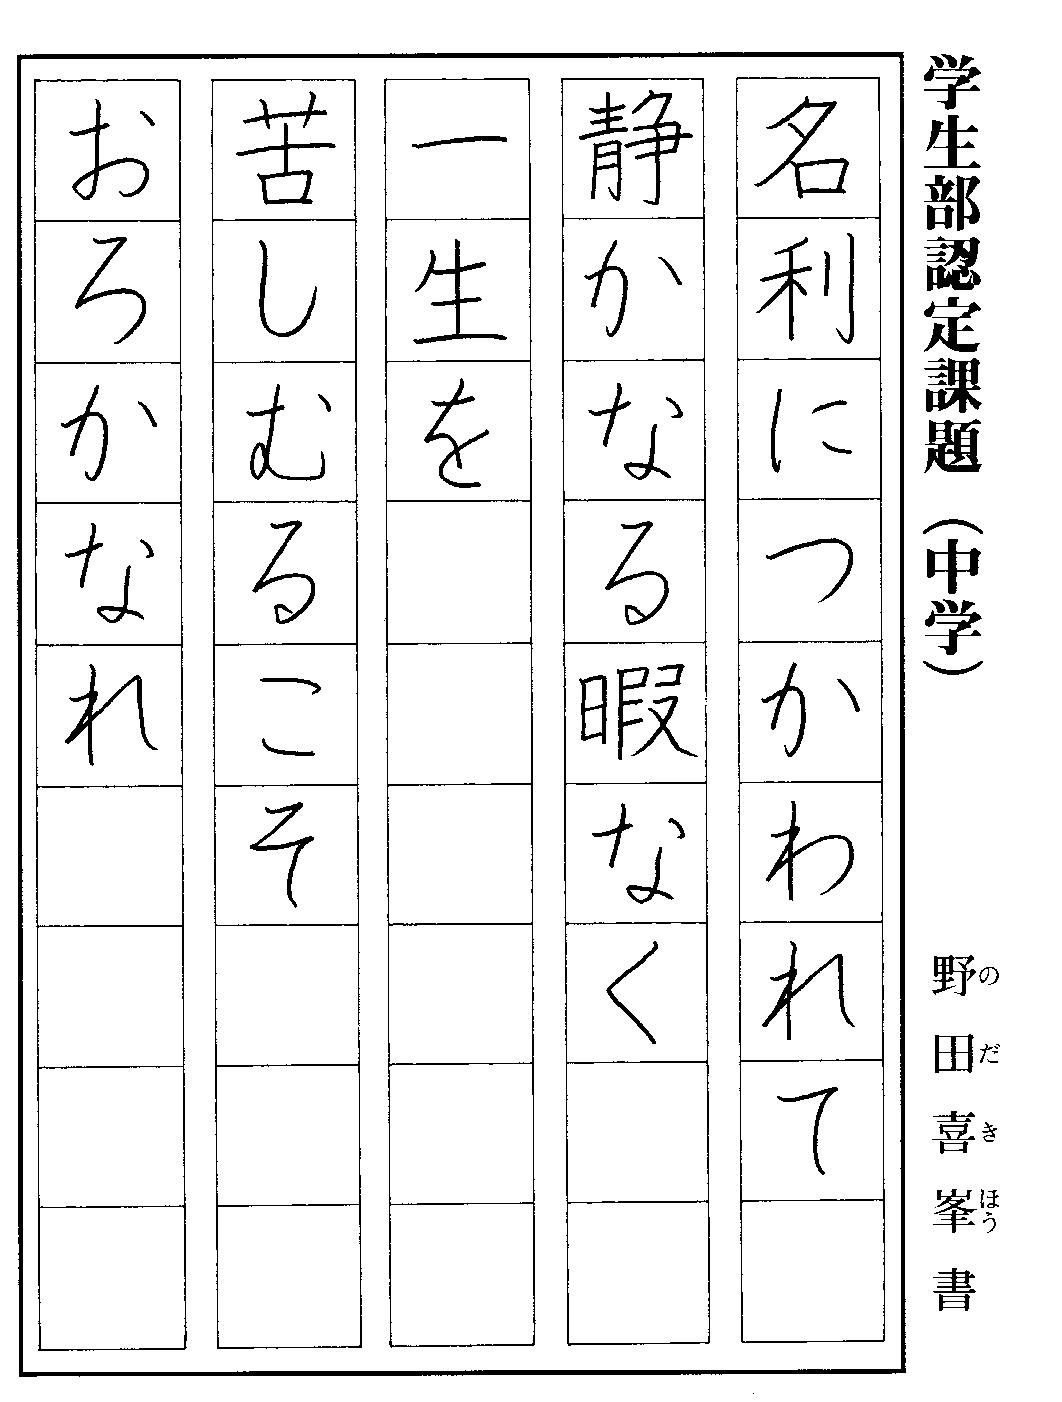 学生部認定課題(中学)
野田喜峯書
のだきほう
名利につかわれて
静かなる暇なく
一生を
苦しむるこそ
おろかなれ